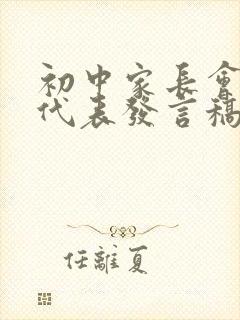 初中家長會
代表發言稿
任離夏